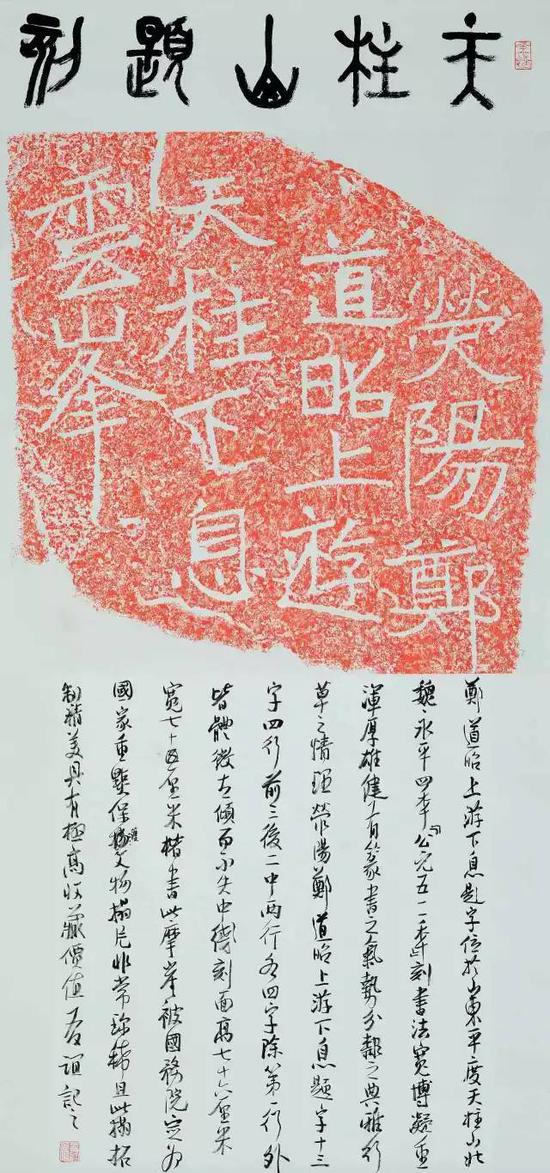 天柱山題刻
熒陽鄭
道昭上遊
天柱下息
雲峯
鄭道昭上游下息題字位於山東平度天柱山北
魏永平四年公元五一一年刻書法寬博凝重
渾厚雄健有篆書之氣勢分韻之典雅行
草之情理滎陽鄭道昭上游下息題字十三
字四行前三後二中兩行各四字除第一行外
皆體微左傾而不失中衡刻面高七十六厘米
寬七十五厘米楷書此摩崖被國務院定為
國家重點保護文物搨片非常珍稀且此搨拓
制精美具有極高收藏價值友誼記之